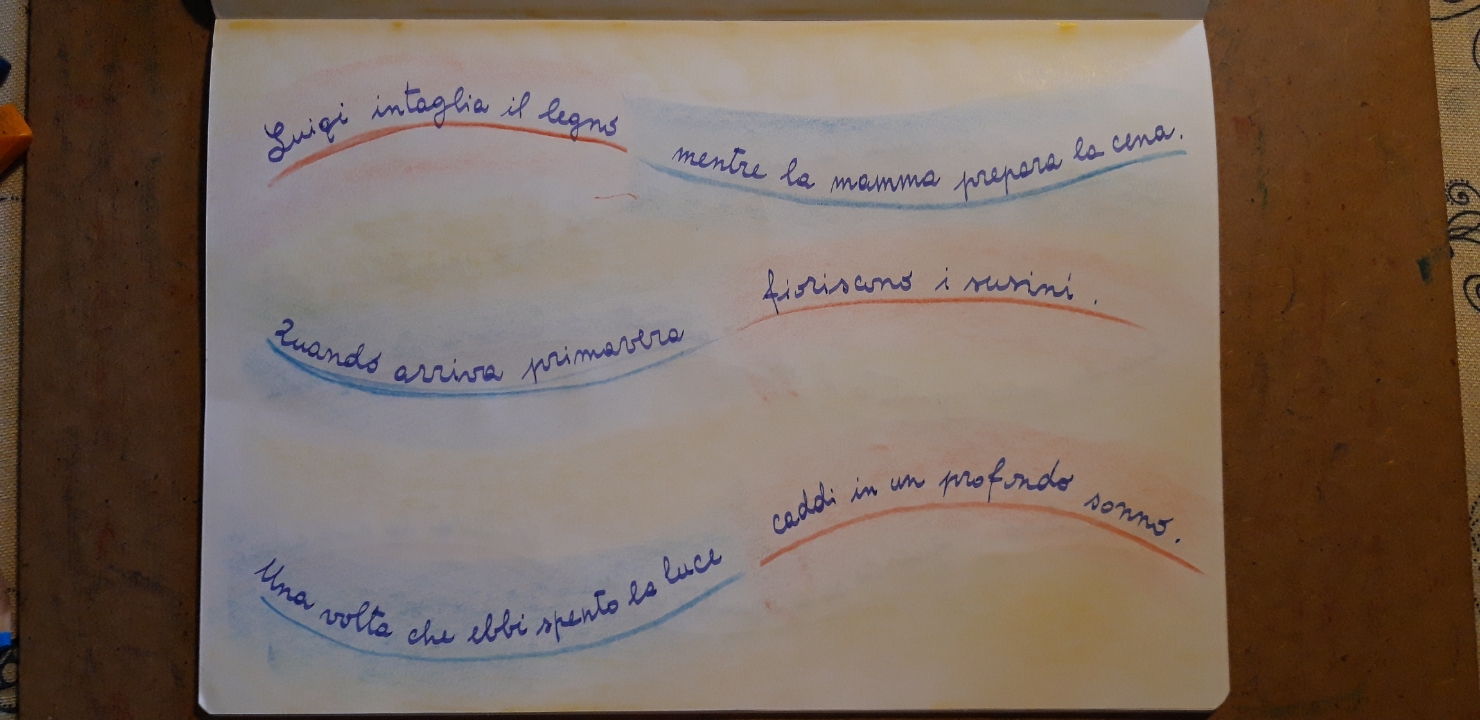 Luigi intaglia il legno
mentre la mamma prepara la cena.
Quando arriva primavera
fioriscono i susini.
Una volta che ebbi spento la luce
caddi in un profondo sonno.